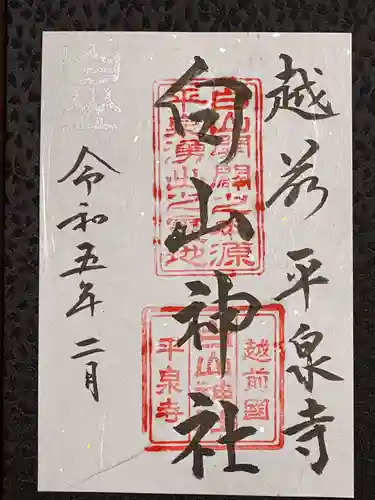 越前 平泉寺
白山神社
令和五年二月
白山開闢之本源
平泉湧出之霊地
越前國
白山神社
平泉寺